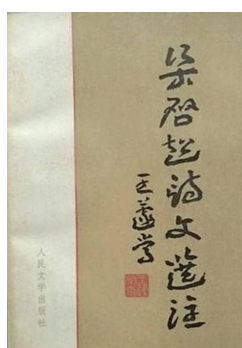 梁启超诗文选注
王蘧常
人民文学出版社